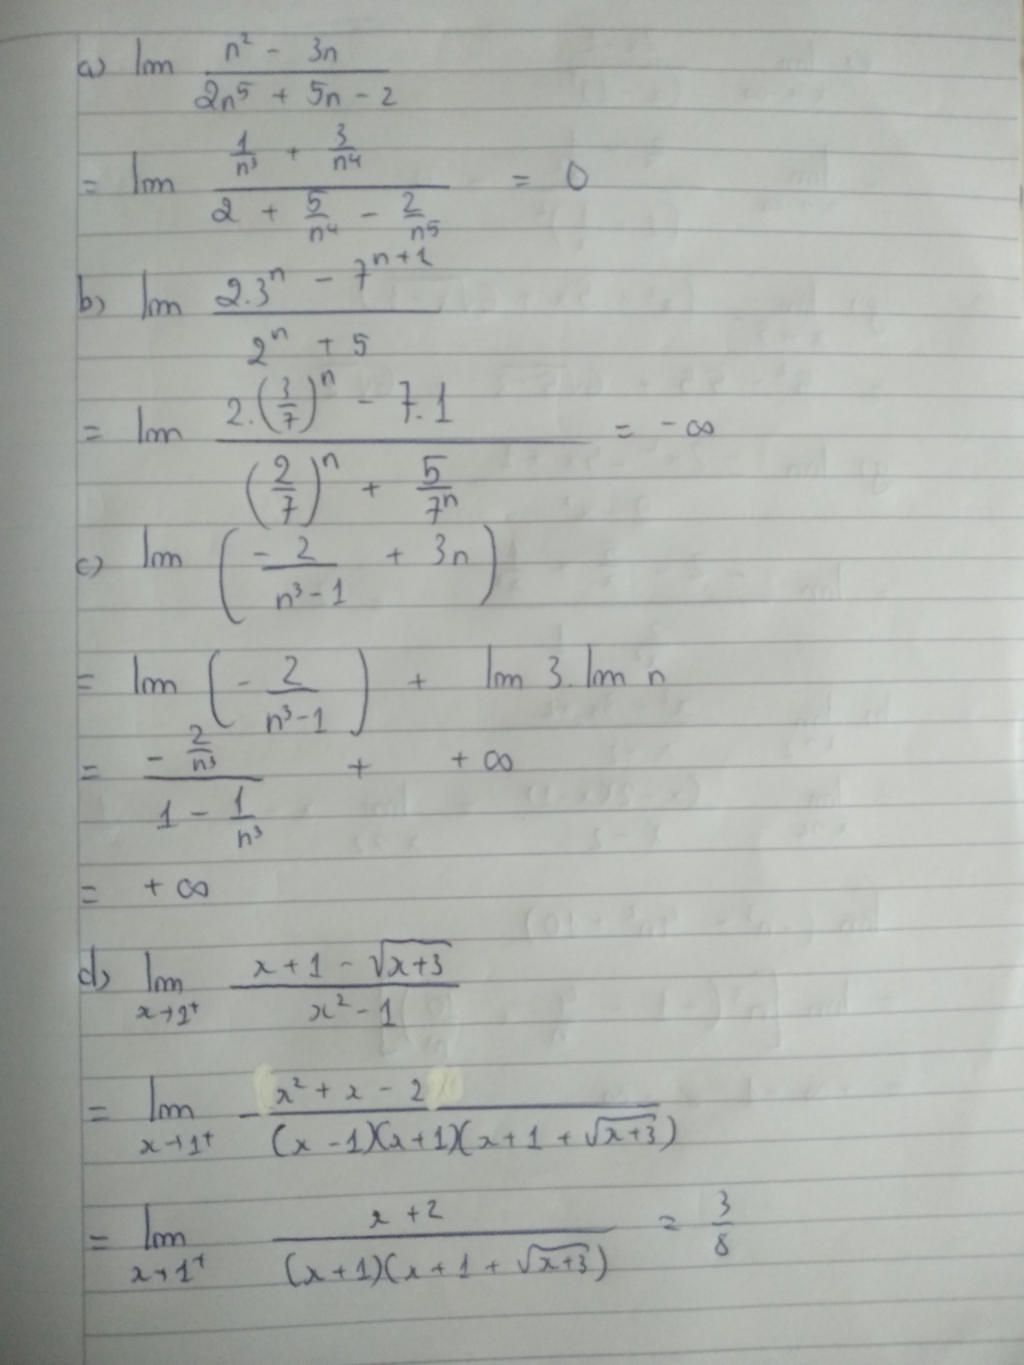 a) lim (n² - 3n)/(2n⁵ + 5n - 2)
= lim (1/n³ + 3/n⁴)/(2 + 5/n⁴ - 2/n⁵) = 0
b) lim (2.3ⁿ - 7ⁿ⁺¹)/(2ⁿ + 5)
= lim (2.(3/7)ⁿ - 7.1)/((2/7)ⁿ + 5/7ⁿ) = -∞
c) lim (-2/(n³-1) + 3n)
= lim (-2/(n³-1)) + lim 3. lim n
= (-2/n³)/(1 - 1/n³) + +∞
= +∞
d) lim x→1⁺ (x+1-√(x+3))/(x²-1)
= lim x→1⁺ - (x²+x-2)/((x-1)(x+1)(x+1+√(x+3)))
= lim x→1⁺ (x+2)/((x+1)(x+1+√(x+3))) = 3/8